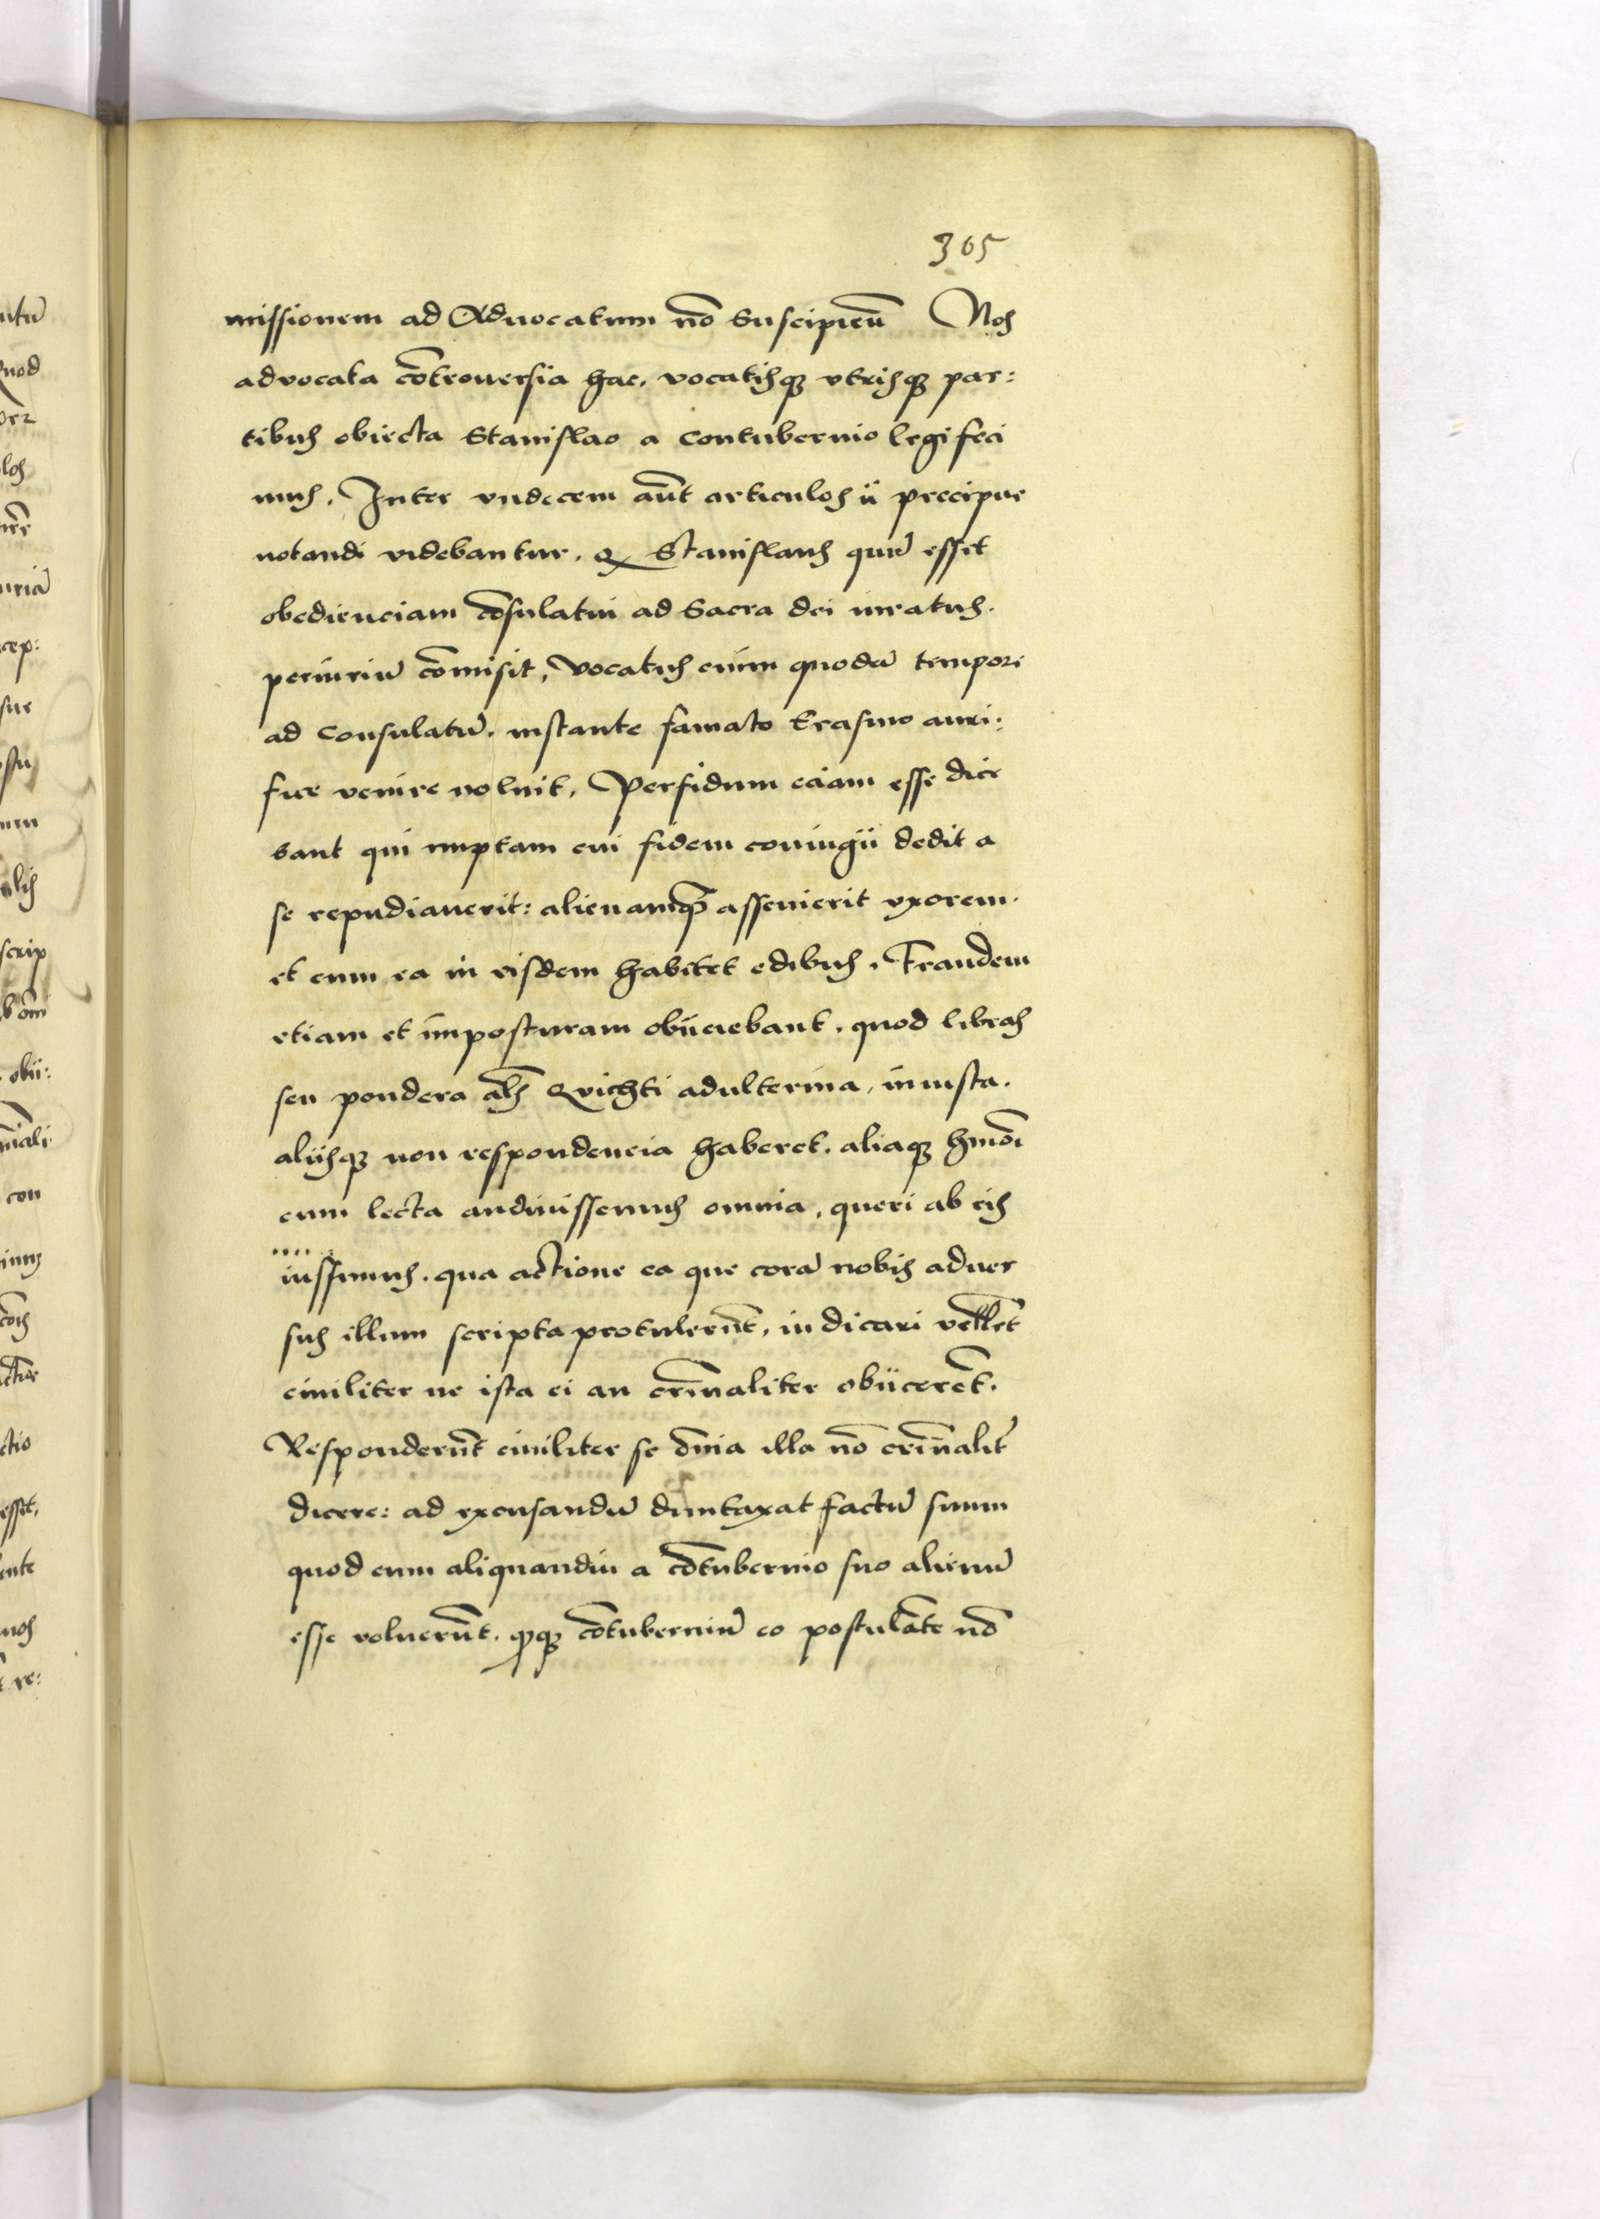 305
missionem ad Aduocatum nō Suscipieñ Nos
advocata cōtrouersia hac. vocatisqꝫ vtrisqꝫ par:
tibus obiecta Stanislao a Contubernio legi feci
mus. Inter vndecem aūt articulos ii precipue
notandi videbantur. Q Stanislaus quū esset
obedienciam cōsulatui ad Sacra dei iuratus.
periuriū cōmisit, Vocatus enim quodā tempore
ad Consulatū. instante famato Erasmo auri:
fice venire noluit. Perfidum eciam esse dice
bant qui nuptam cui fidem coniugii dedit a
se repudiauerit: alienamqꝫ assenierit vxorem.
et cum ea in eisdem habitet edibus. Fraudem
etiam et imposturam obiiciebant. quod libras
seu pondera als Qvichti adulterina, iniusta.
aliisqꝫ non respondencia haberet. aliaqꝫ hmōi
cum lecta audiuissemus omnia, queri ab eis
iussimus. qua actione ea que corā nobis aduer
sus illum scripta protulerūt, iudicari vellēt
ciuiliter ne ista ei an crīnaliter obiicerēt.
Responderūt ciuiliter se ōnia illa nō crīnalit
dicere: ad excusandū duntaxat factū suum
quod eum aliquandiu a cōtubernio suo alienū
esse voluerūt. ꝓqꝫ cōtuberniū eo postulāte nō